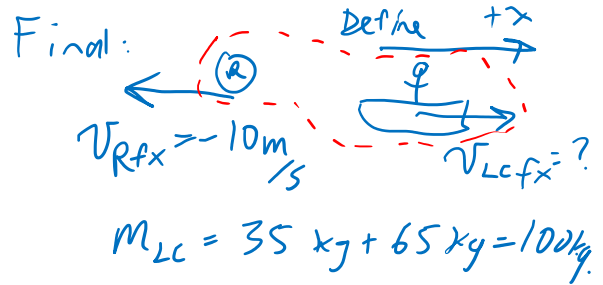 Define +x
Final:
R
V_Rfx = -10m/s
V_LCfx = ?
M_LC = 35 kg + 65 kg = 100kg.